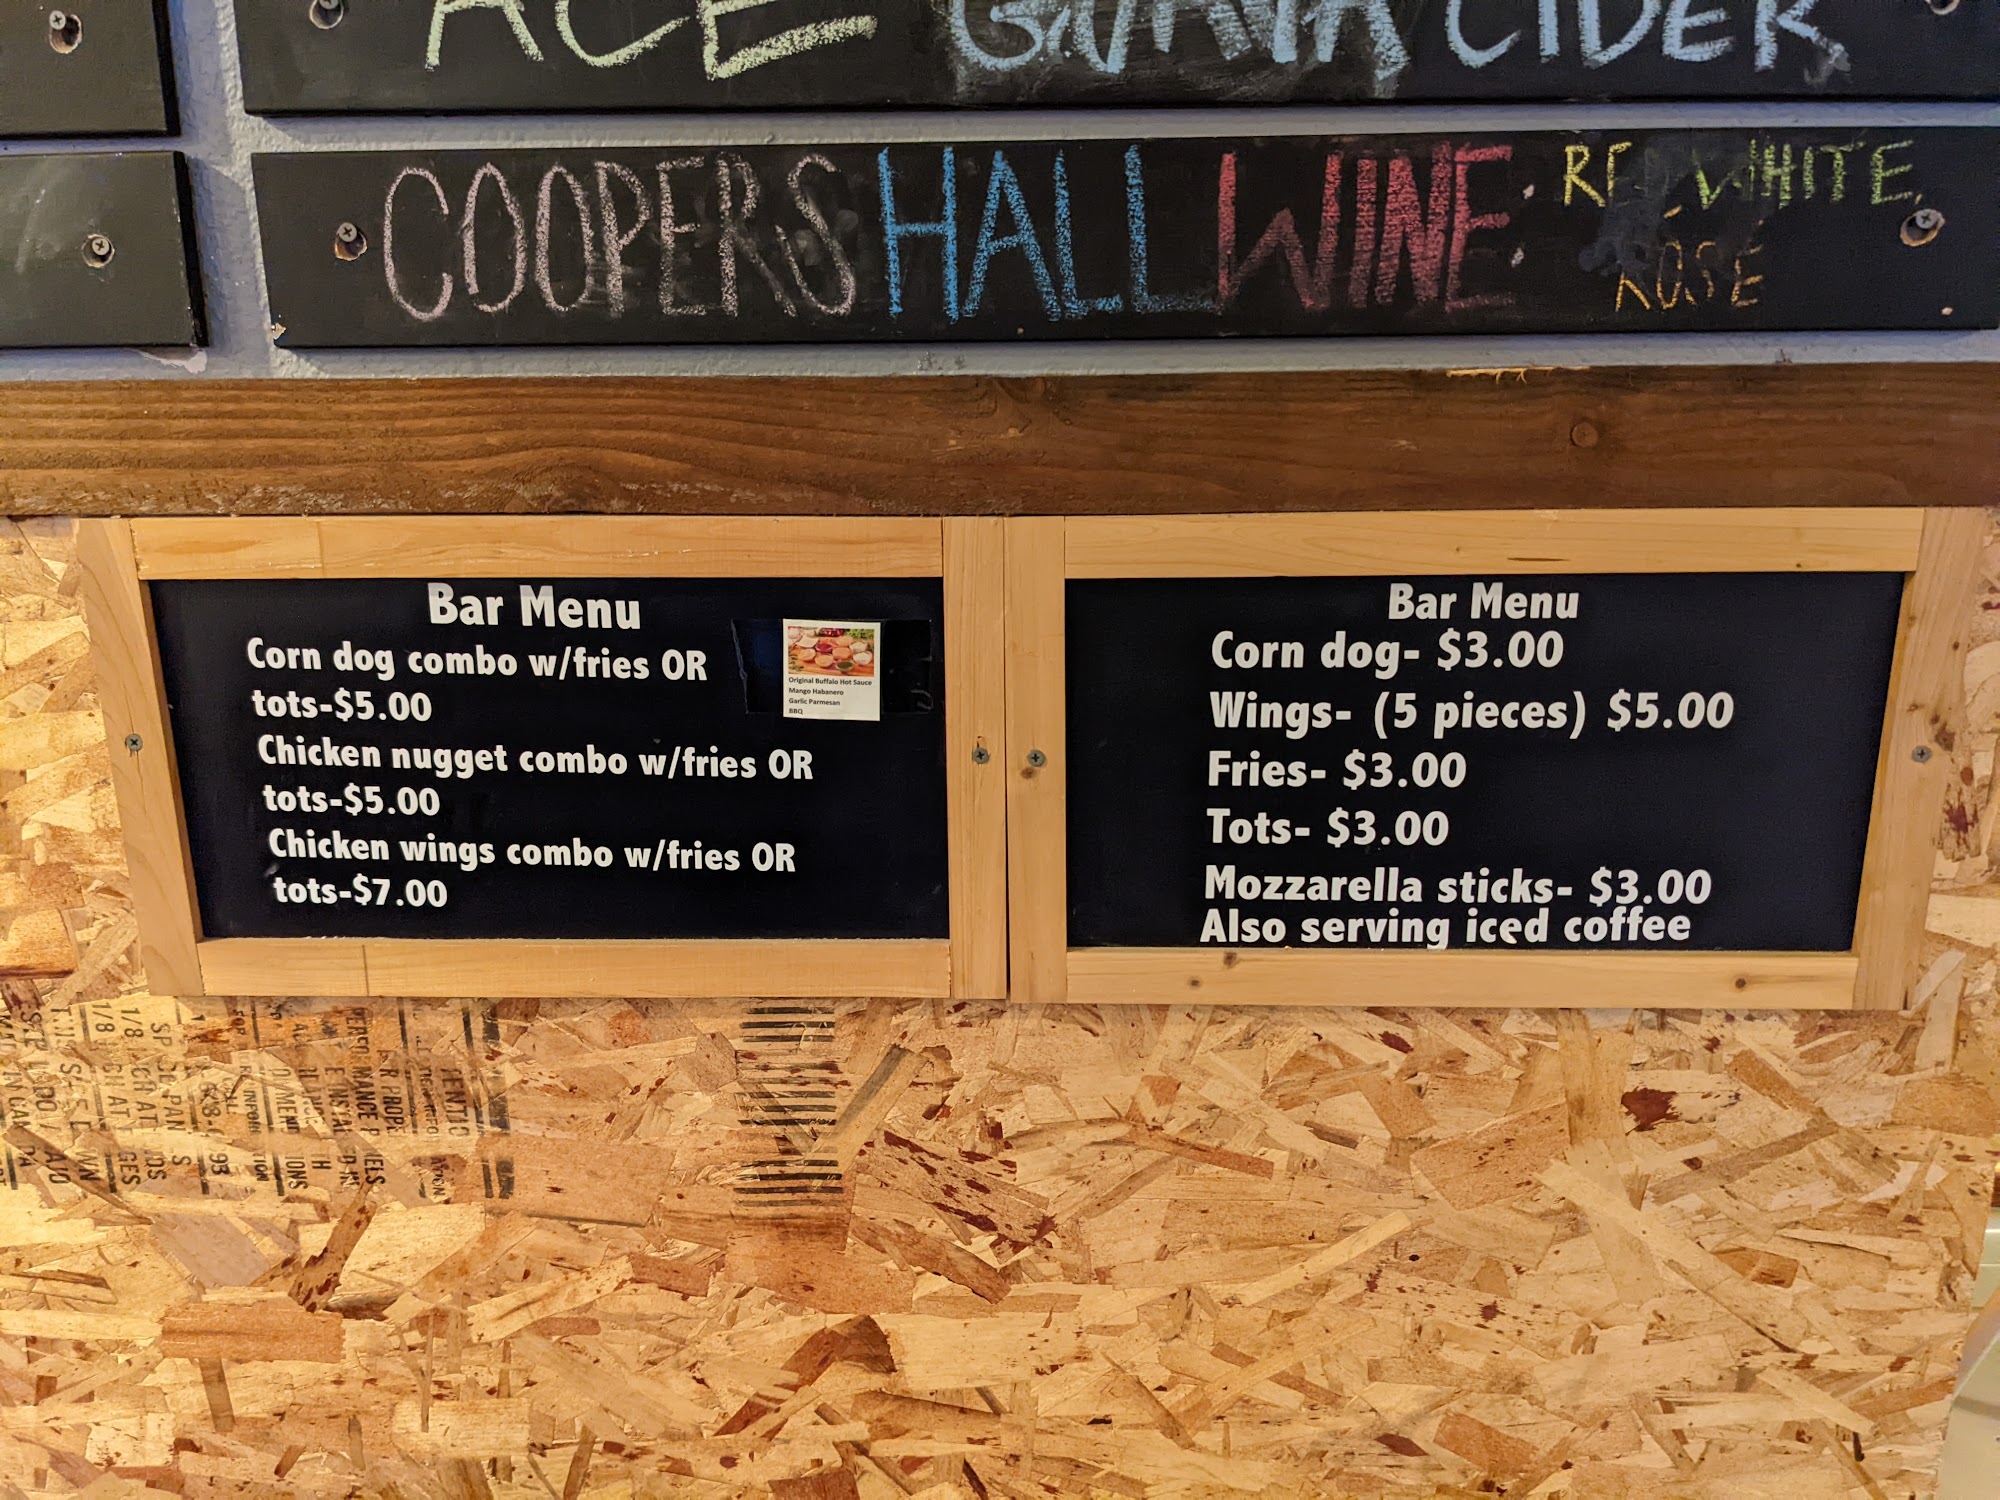 ACE GUAVA CIDER
COOPERS HALL WINE WHITE,
ROSE
Bar Menu
Corn dog combo w/fries OR
tots-$5.00
Chicken nugget combo w/fries OR
tots-$5.00
Chicken wings combo w/fries OR
tots-$7.00
Original Buffalo Hot Sauce
Mango Habanero
Garlic Parmesan
BBQ
Bar Menu
Corn dog- $3.00
Wings- (5 pieces) $5.00
Fries- $3.00
Tots- $3.00
Mozzarella sticks- $3.00
Also serving iced coffee